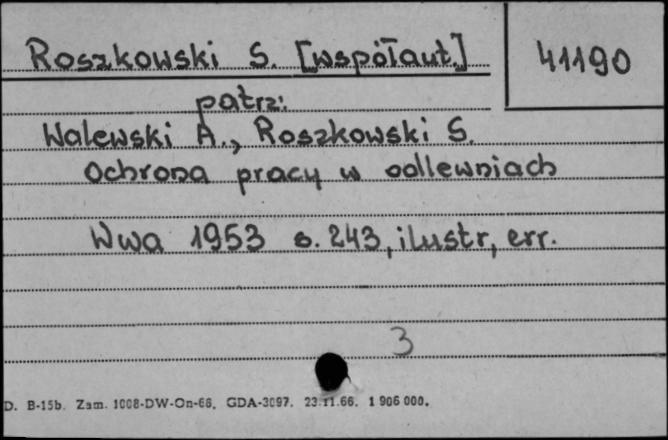 Roszkowski S. [współaut.]
41190
patrz:
Walewski A., Roszkowski S.
Ochrona pracy w odlewniach
Wwa 1953 s. 243, ilustr, err.
3
D. B-15b. Zam. 1008-DW-On-66. GDA-3097. 23.11.66. 1 906 000.